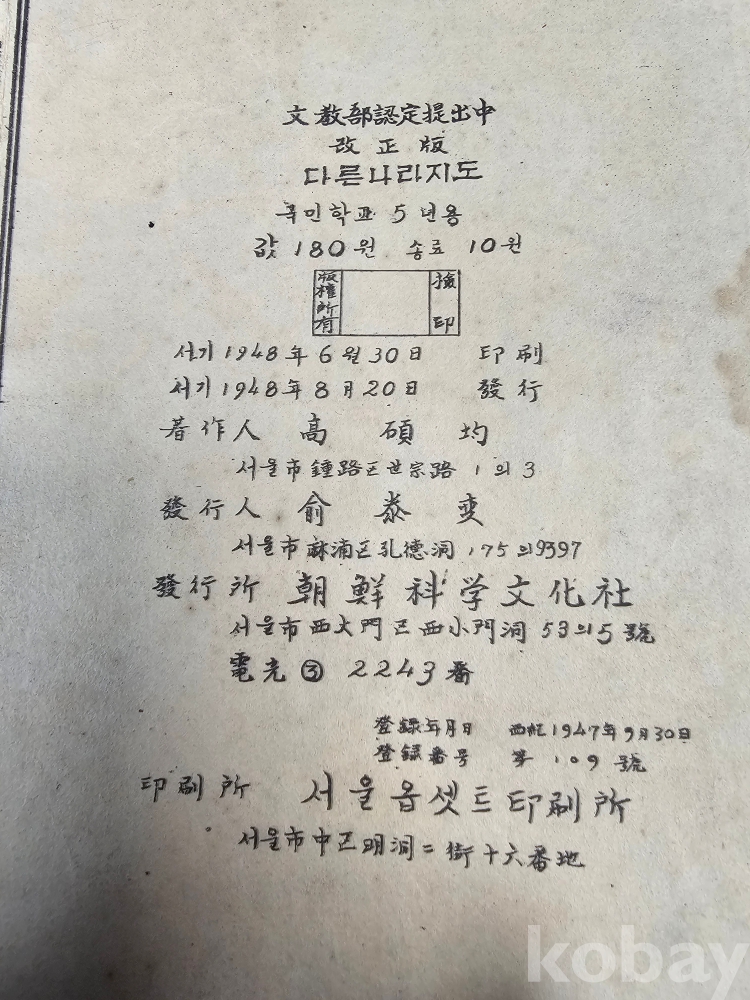 文敎部認定提出中
改正版
다른나라지도
국민학교 5 년용
값 180원 송료 10원
版權所有 檢印
서기1948年6월30日 印刷
서기1948年8月20日 發行
著作人 高碩均
서울市鍾路区世宗路 1의3
發行人 兪泰
서울市麻浦区孔德洞 175의9397
發行所 朝鮮科学文化社
서울市西大門区西小門洞 53의5號
電光③ 2243番
登録年月日 西紀1947年9月30日
登録番号 第109號
印刷所 서울옵셋트印刷所
서울市中区明洞二街十六番地
kobay